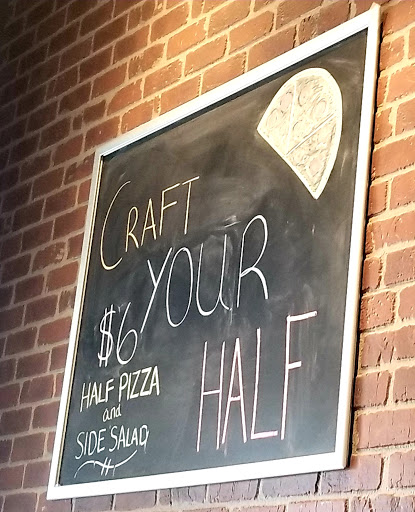 CRAFT
YOUR
HALF
$6
HALF PIZZA
and
SIDE SALAD